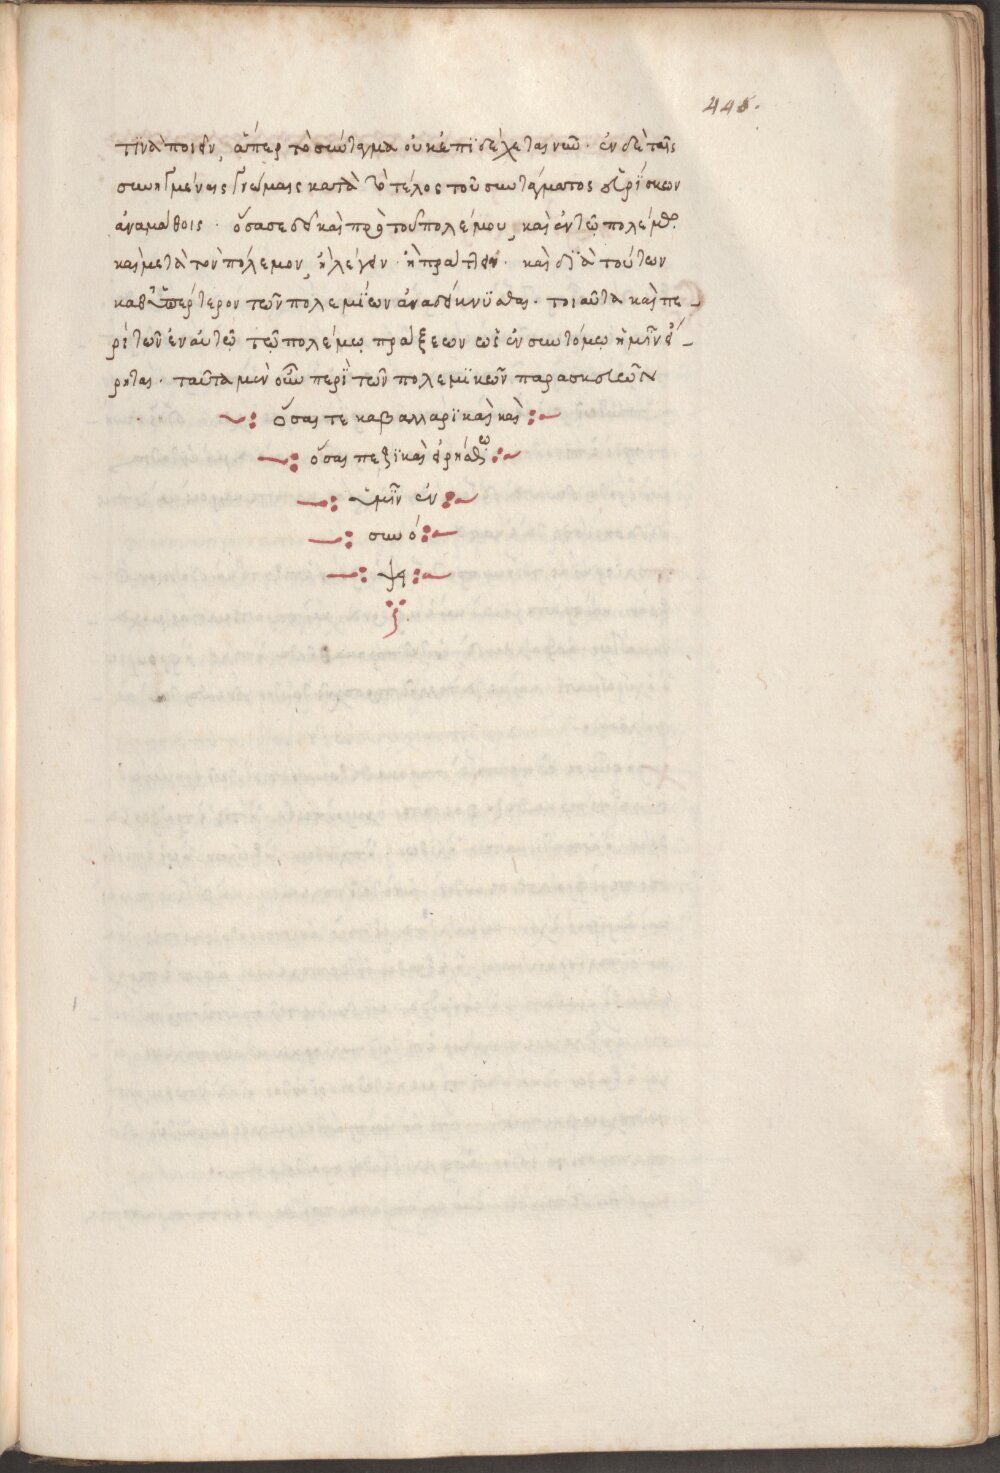 445.
τινὰ ποιεῖν, ἅπερ τὸ σύνταγμα οὐκ ἐπιδέχεται νῦν. ἐν δὲ ταῖς
συνηγμέναις γνώμαις κατὰ τὸ τέλος τοῦ συντάγματος εὑρίσκων
ἀναμάθοις. ὅσα σε δεῖ καὶ πρὸ τοῦ πολέμου, καὶ ἐν τῷ πολέμῳ.
καὶ μετὰ τὸν πόλεμον, ἢ λέγειν. ἢ πράττειν. καὶ διὰ τούτων
καθυπέρτερον τῶν πολεμίων ἀναδείκνυσθαι. τοιαῦτα καὶ πε-
ρὶ τῶν ἐν αὐτῷ τῷ πολέμῳ πράξεων ὡς ἐν συντόμῳ ἡμῖν εἴ-
ρηται. ταῦτα μὲν οὖν περὶ τῶν πολεμικῶν παρασκευῶν
ὅσαι τε καβαλλαρικαὶ καὶ
ὅσαι πεζικαὶ εἰρήσθω
ὑμῖν ἐν
συνό
ψει